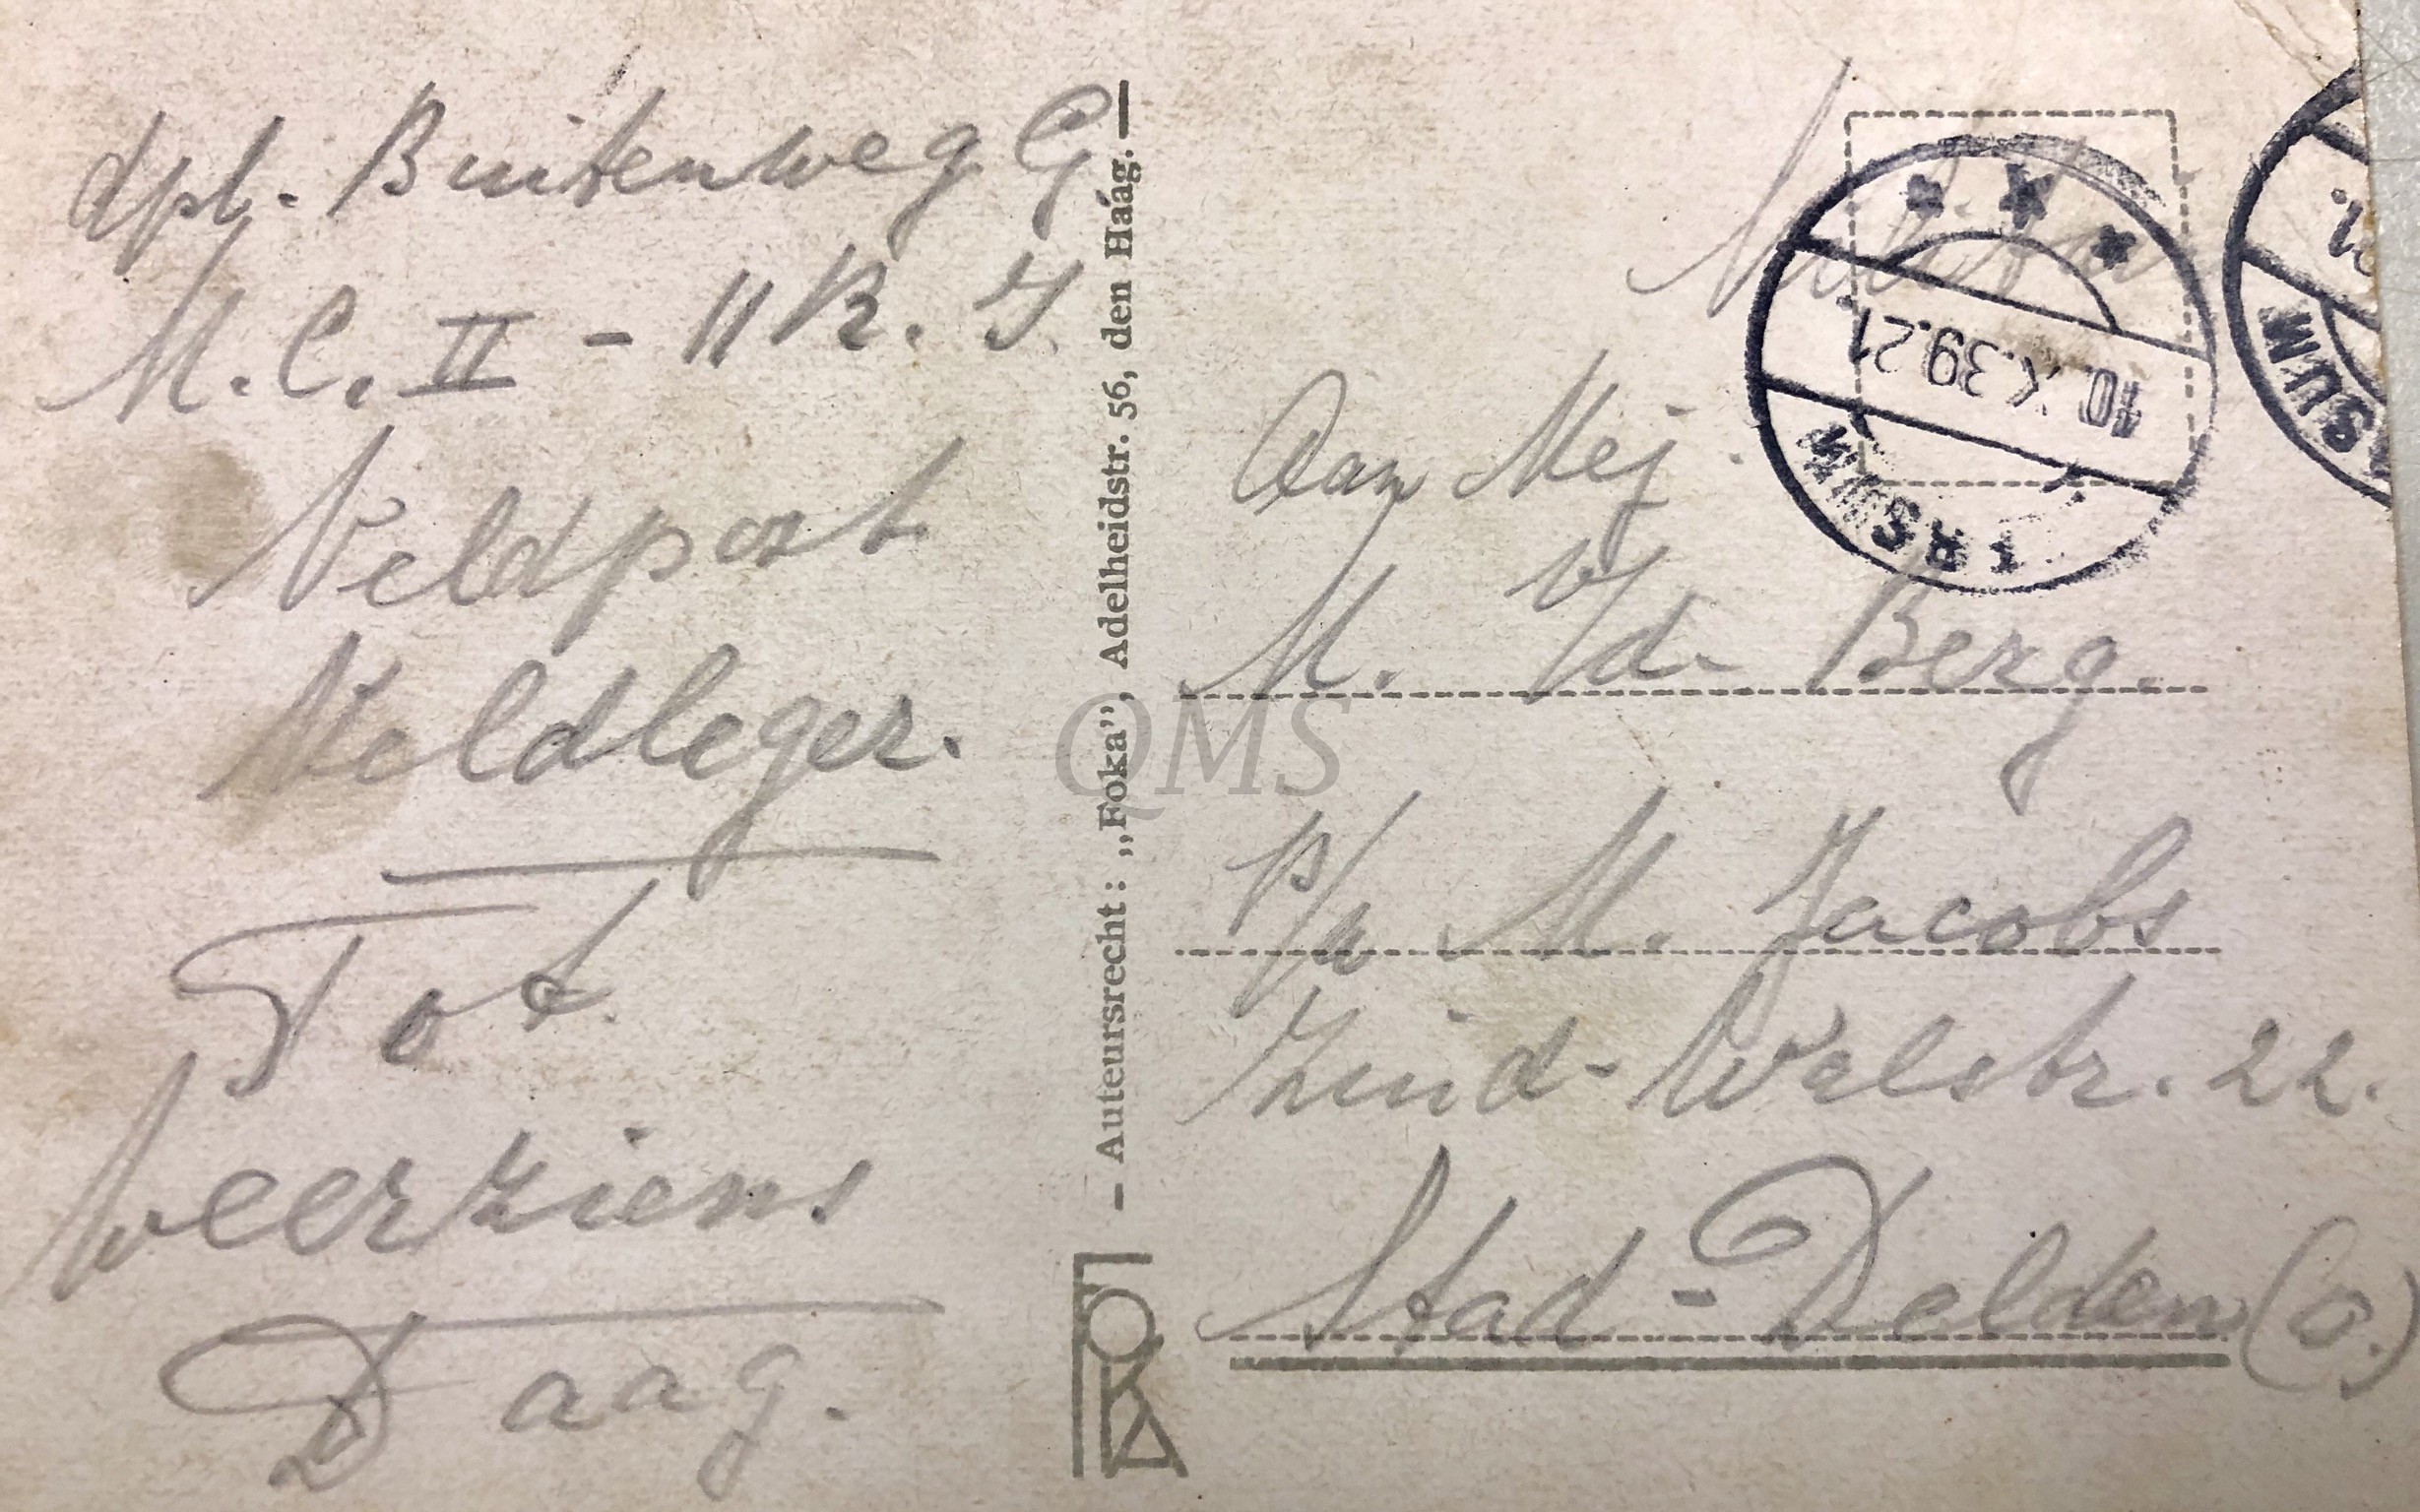 dpl. Buitenweg G
M.C. II - 11 R. I.
Veldpost
Veldleger.
Tot
Weerziens
Daag.
- Auteursrecht: „Foka”, Adelheidstr. 56, den Haag. -
FOKA
QMS
10.X.39.21
Aan Mej.
M. v/d. Berg.
p/a M. Jacobs
Zuid-Walstr. 22.
Stad-Delden (O.)